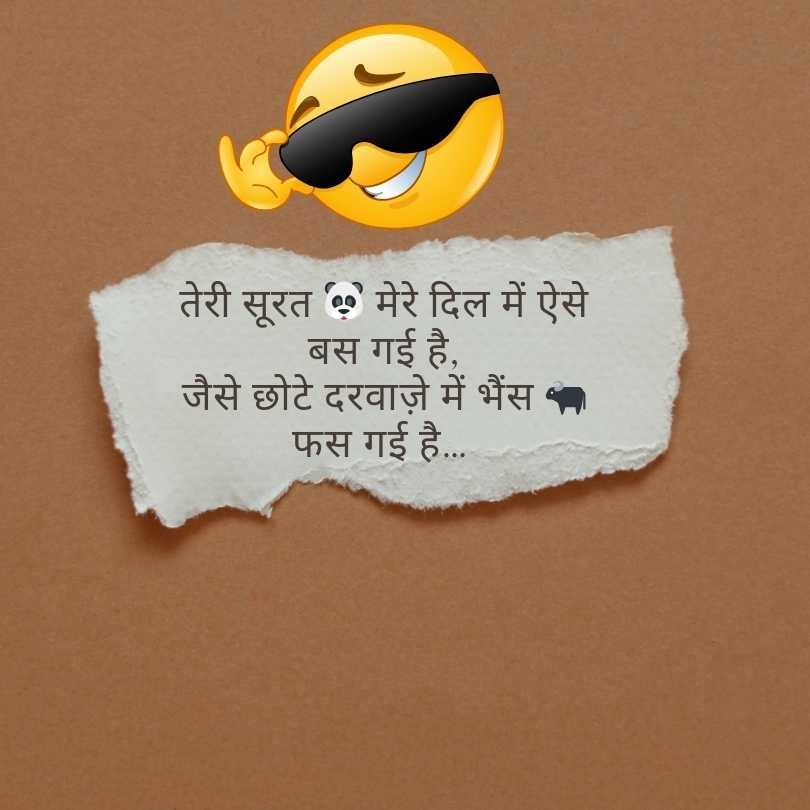 तेरी सूरत 🐼 मेरे दिल में ऐसे
बस गई है,
जैसे छोटे दरवाज़े में भैंस 🐃
फस गई है...